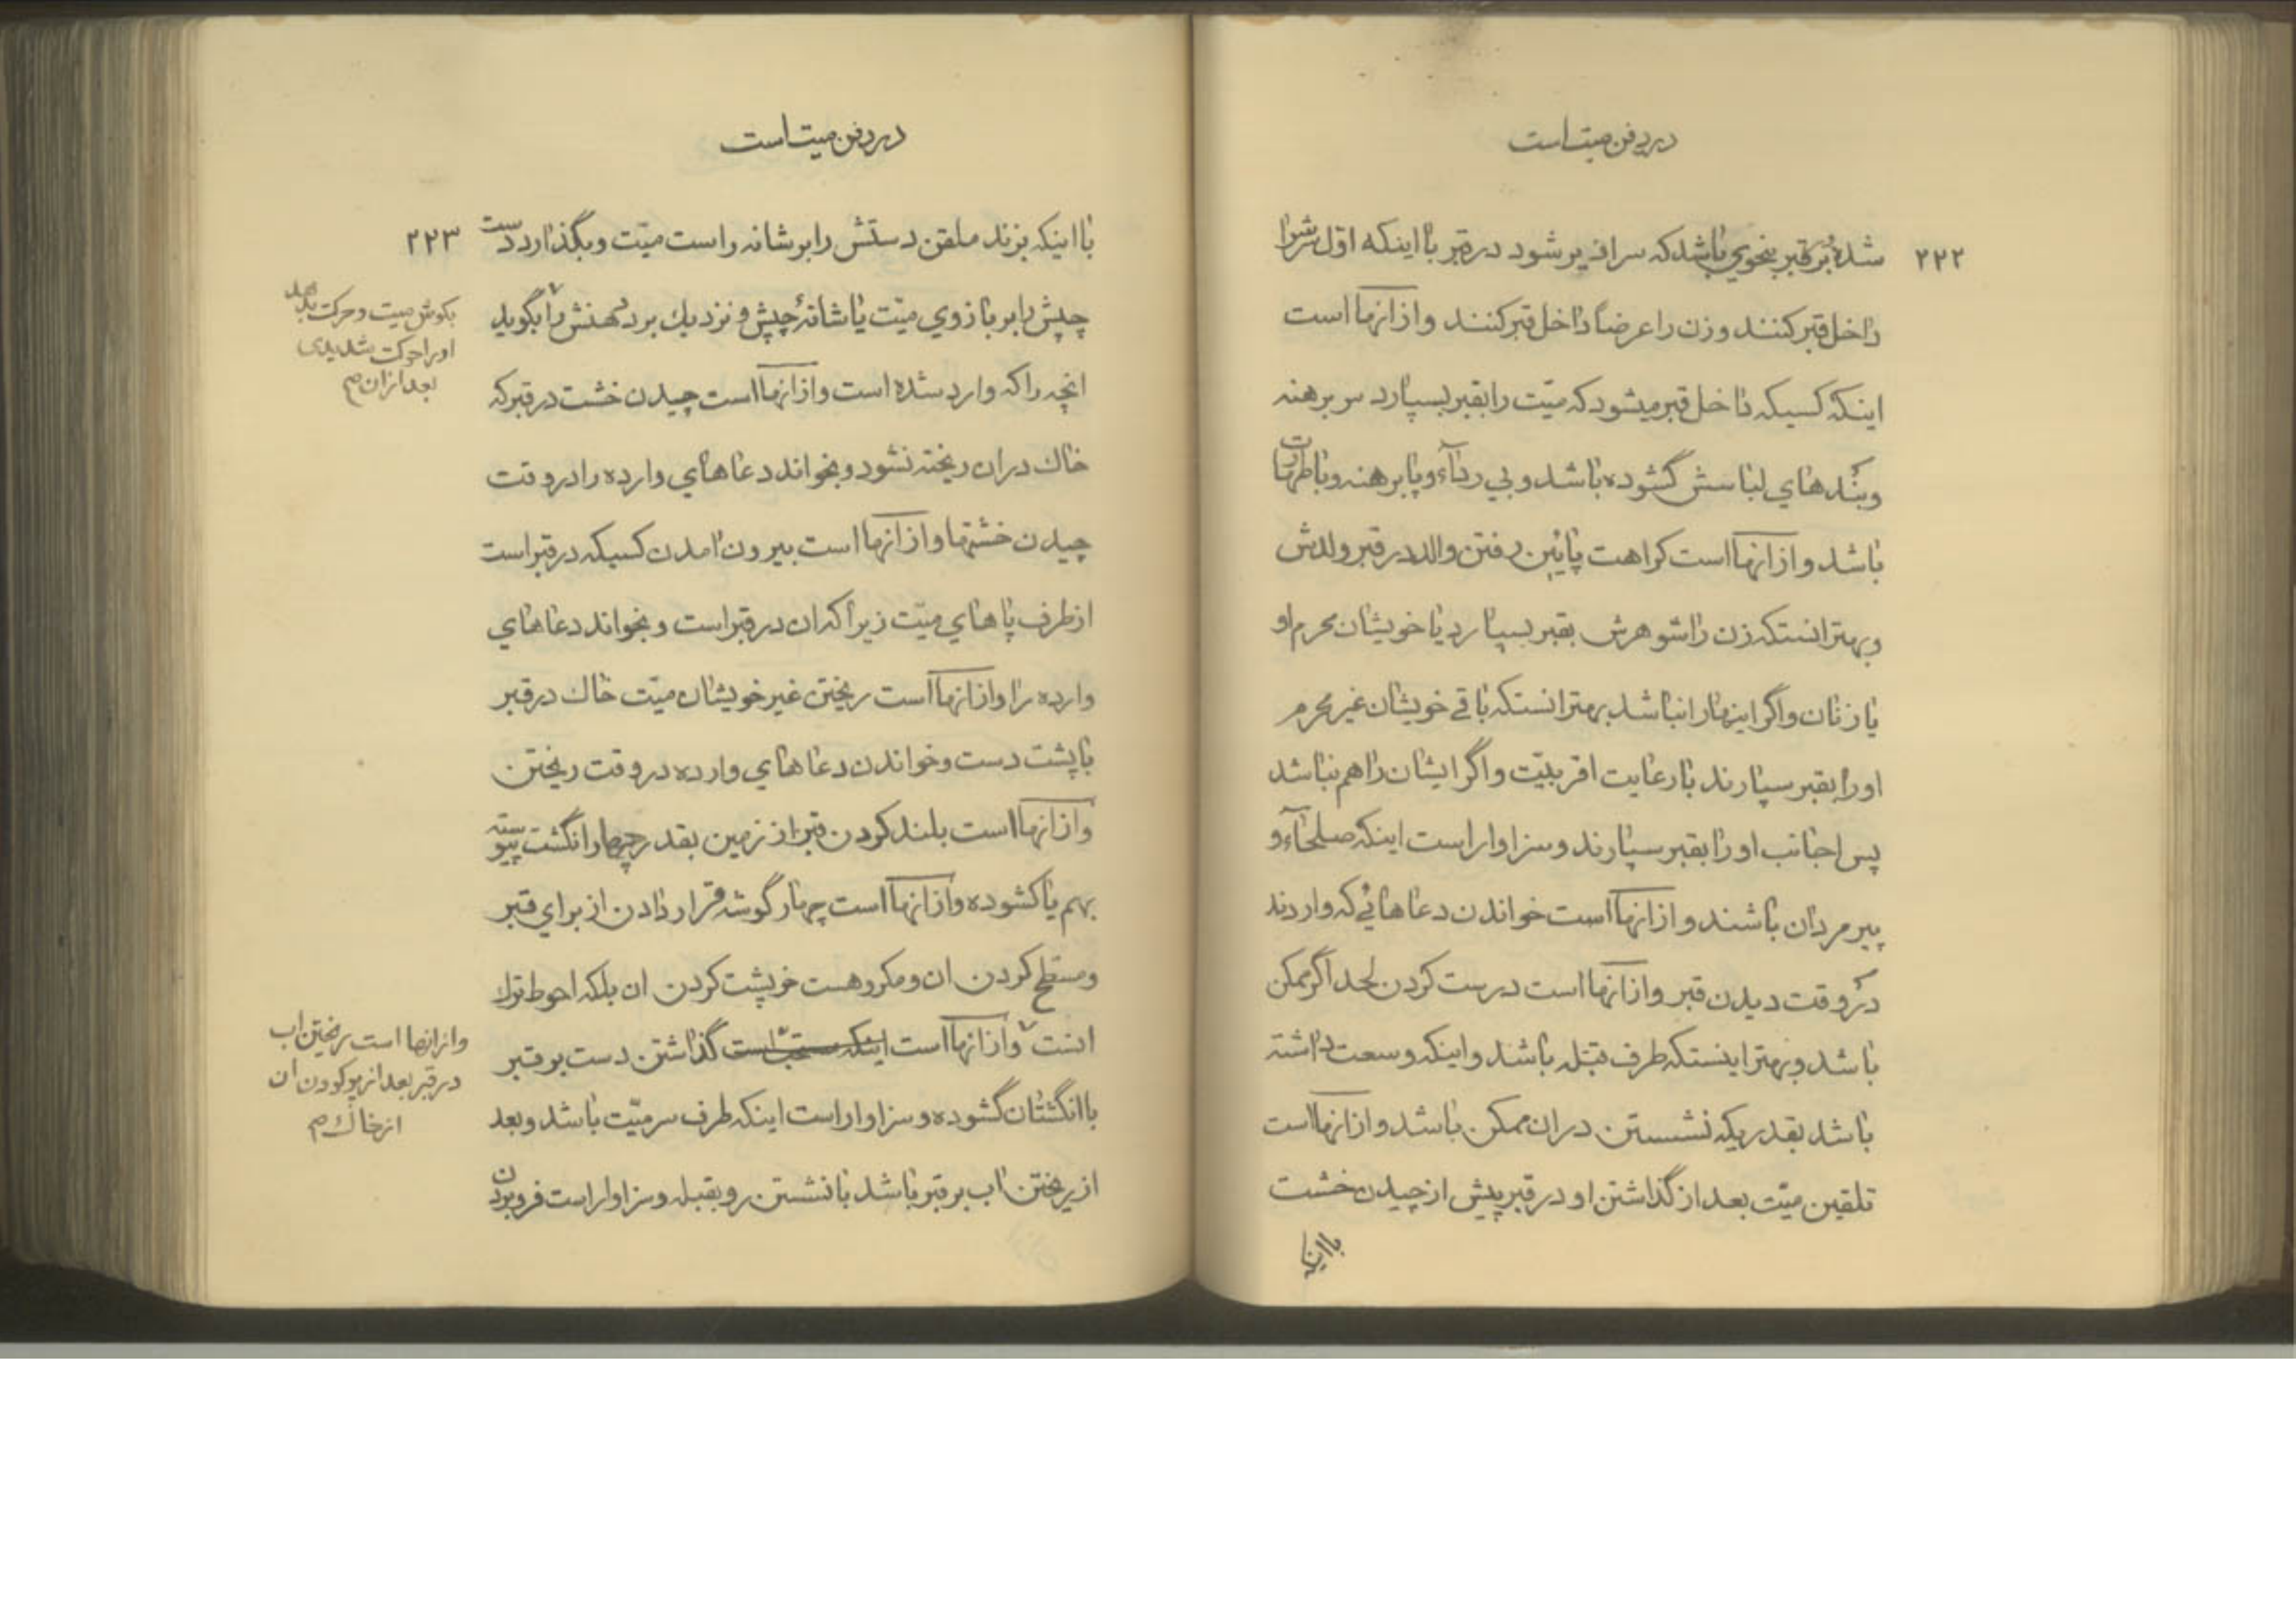 در دفن میت است
۲۲۲
شده بر قبر بنحوی باشد که سرازیر شود در قبر با اینکه اول سرش را
داخل قبر کنند و زن را عرضاً داخل قبر کنند و از انها است
اینکه کسیکه داخل قبر میشود که میّت را بقبر بسپارد سر برهنه
و بندهای لباسش گشوده باشد و بی ردآء و پا برهنه و با طهارت
باشد و از انها است کراهت پائین رفتن والد در قبر ولدش
و بهتر انستکه زن را شوهرش بقبر بسپارد یا خویشان محرم او
یا زنان و اگر اینها را نباشد بهتر انستکه باقی خویشان غیر محرم
او را بقبر سپارند با رعایت اقربیّت و اگر ایشان را هم نباشد
پس اجانب او را بقبر سپارند و سزاوار است اینکه صلحآء و
پیر مردان باشند و از انها است خواندن دعاهائی که واردند
در وقت دیدن قبر و از انها است درست کردن لحد اگر ممکن
باشد و بهتر اینستکه طرف قبله باشد و اینکه وسعت داشته
باشد بقدریکه نشستن در ان ممکن باشد و از انها است
تلقین میّت بعد از گذاشتن او در قبر پیش از چیدن خشت
با اینکه
در دفن میت است
۲۲۳
با اینکه بزند ملقن دستش را بر شانه راست میّت و بگذارد دست
چپش را بر بازوی میّت یا شانهٔ چپش و نزدیك برد دهنش را بگوید
انچه را که وارد شده است و از انها است چیدن خشت در قبر که
خاك در ان ریخته نشود و بخواند دعاهای وارده را در وقت
چیدن خشتها و از انها است بیرون امدن کسیکه در قبر است
از طرف پاهای میّت زیرا که ان در قبر است و بخواند دعاهای
وارده را و از انها است ریختن غیر خویشان میّت خاك در قبر
با پشت دست و خواندن دعاهای وارده در وقت ریختن
و از انها است بلند کردن قبر از زمین بقدر چهار انگشت پیوسته
بهم یا کشوده و از انها است چهار گوشه قرار دادن از برای قبر
و مسطح کردن ان و مکروهست خرپشت کردن ان بلکه احوط ترك
انست و از انها است اینکه مستحب است گذاشتن دست بر قبر
با انگشتان گشوده و سزاوار است اینکه طرف سر میّت باشد و بعد
از ریختن اب بر قبر باشد با نشستن رو بقبله و سزاوار است فرو بردن
بگوش میت و حرکت بدهد
او را حرکت شدیدی
بعد از ان م
و از انها است ریختن اب
در قبر بعد از پر کردن ان
از خاك م